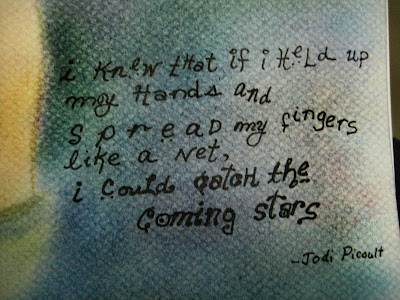 i KNeW tHat if i HeLd up
my HaNds aNd
s p r e a D my fingers
like a Net,
i Could catch the
Coming stars
-Jodi Picoult